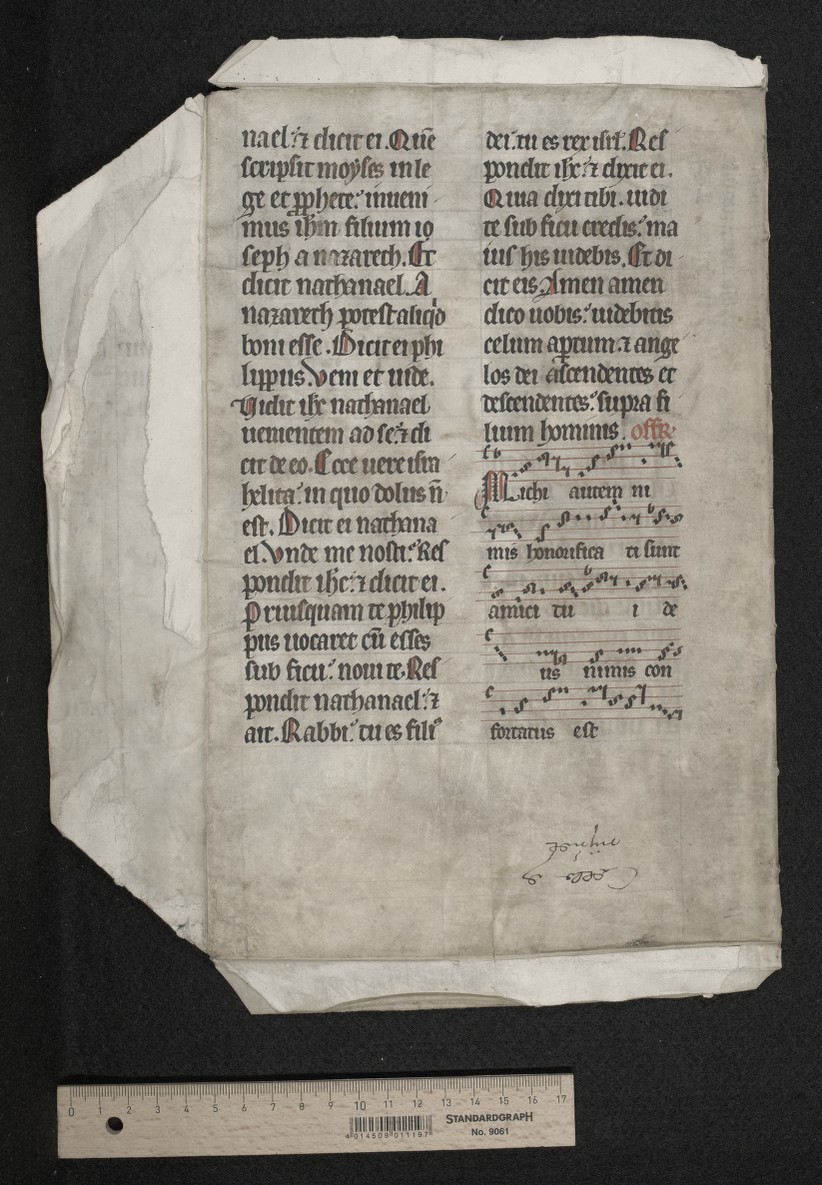 nael:⁊ dicit ei. Quē
scripsit moyses in le
ge et ꝓphete: inueni
mus ih̄m filium io
seph a nazareth. Et
dicit nathanael. A
nazareth potest aliqd
boni esse. Dicit ei phi
lippus. Veni et uide.
Vidit ihc nathanael
uenientem ad se:⁊ di
cit de eo. Ecce uere isra
helita: in quo dolus n̄
est. Dicit ei nathana
el. Vnde me nosti: Res
pondit ihc:⁊ dicit ei.
Priusquam te philip
pus uocaret cū esses
sub ficu: noui te. Res
pondit nathanael:⁊
ait. Rabbi: tu es fili⁹
dei. tu es rex isrl. Res
pondit ihc:⁊ dixit ei.
Quia dixi tibi. uidi
te sub ficu credis: ma
ius his uidebis. Et di
cit eis. Amen amen
dico uobis: uidebitis
celum aꝑtum.⁊ ange
los dei ascendentes et
descendentes: supra fi
lium hominis. offR
Michi autem ni
mis honorifica ti sunt
amici tu i de
us nimis con
fortatus est
0 1 2 3 4 5 6 7 8 9 10 11 12 13 14 15 16 17
4 014509 011197
STANDARDGRAPH
No. 9061